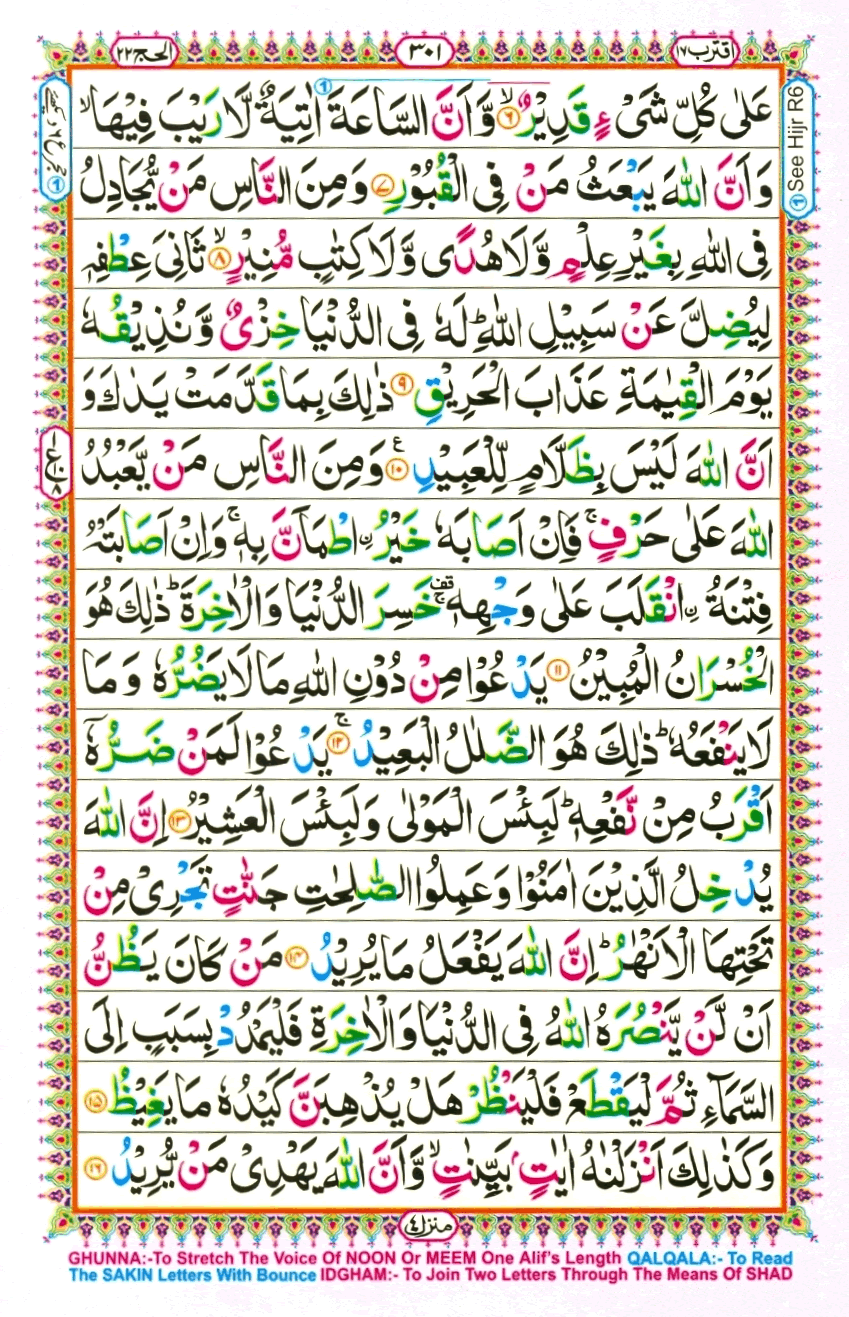 اقترب ١٧
٣٠١
الحج ٢٢
عَلٰى كُلِّ شَىْءٍ قَدِيْرٌ ۙ‏﴿۶﴾ وَّاَنَّ السَّاعَةَ اٰتِيَةٌ لَّا رَيْبَ فِيْهَا ۙ
وَاَنَّ اللّٰهَ يَبْعَثُ مَنْ فِى الْقُبُوْرِ ﴿۷﴾ وَمِنَ النَّاسِ مَنْ يُّجَادِلُ
فِى اللّٰهِ بِغَيْرِ عِلْمٍ وَّلَا هُدًى وَّلَا كِتٰبٍ مُّنِيْرٍ ۙ﴿۸﴾ ثَانِىَ عِطْفِهٖ
لِيُضِلَّ عَنْ سَبِيْلِ اللّٰهِ ؕ لَهٗ فِى الدُّنْيَا خِزْىٌ وَّنُذِيْقُهٗ
يَوْمَ الْقِيٰمَةِ عَذَابَ الْحَرِيْقِ ﴿۹﴾ ذٰلِكَ بِمَا قَدَّمَتْ يَدٰكَ وَ
اَنَّ اللّٰهَ لَيْسَ بِظَلَّامٍ لِّلْعَبِيْدِ ﴿۱۰﴾ وَمِنَ النَّاسِ مَنْ يَّعْبُدُ
اللّٰهَ عَلٰى حَرْفٍ ۚ فَاِنْ اَصَابَهٗ خَيْرُ ۨاطْمَاَنَّ بِهٖ ۚ وَاِنْ اَصَابَتْهُ
فِتْنَةُ ۨانْقَلَبَ عَلٰى وَجْهِهٖ ۚ قف خَسِرَ الدُّنْيَا وَالْاٰخِرَةَ ؕ ذٰلِكَ هُوَ
الْخُسْرَانُ الْمُبِيْنُ ﴿۱۱﴾ يَدْعُوْا مِنْ دُوْنِ اللّٰهِ مَا لَا يَضُرُّهٗ وَمَا
لَا يَنْفَعُهٗ ؕ ذٰلِكَ هُوَ الضَّلٰلُ الْبَعِيْدُ ۚ﴿۱۲﴾ يَدْعُوْا لَمَنْ ضَرُّهٗۤ
اَقْرَبُ مِنْ نَّفْعِهٖ ؕ لَبِئْسَ الْمَوْلٰى وَلَبِئْسَ الْعَشِيْرُ ﴿۱۳﴾ اِنَّ اللّٰهَ
يُدْخِلُ الَّذِيْنَ اٰمَنُوْا وَعَمِلُوا الصّٰلِحٰتِ جَنّٰتٍ تَجْرِىْ مِنْ
تَحْتِهَا الْاَنْهٰرُ ؕ اِنَّ اللّٰهَ يَفْعَلُ مَا يُرِيْدُ ﴿۱۴﴾ مَنْ كَانَ يَظُنُّ
اَنْ لَّنْ يَّنْصُرَهُ اللّٰهُ فِى الدُّنْيَا وَالْاٰخِرَةِ فَلْيَمْدُدْ بِسَبَبٍ اِلَى
السَّمَآءِ ثُمَّ لْيَقْطَعْ فَلْيَنْظُرْ هَلْ يُذْهِبَنَّ كَيْدُهٗ مَا يَغِيْظُ ﴿۱۵﴾
وَكَذٰلِكَ اَنْزَلْنٰهُ اٰيٰتٍۢ بَيِّنٰتٍ ۙ وَّاَنَّ اللّٰهَ يَهْدِىْ مَنْ يُّرِيْدُ ﴿۱۶﴾
① See Hijr R6
منزل ٤
GHUNNA:-To Stretch The Voice Of NOON Or MEEM One Alif's Length QALQALA:- To Read
The SAKIN Letters With Bounce IDGHAM:- To Join Two Letters Through The Means Of SHAD